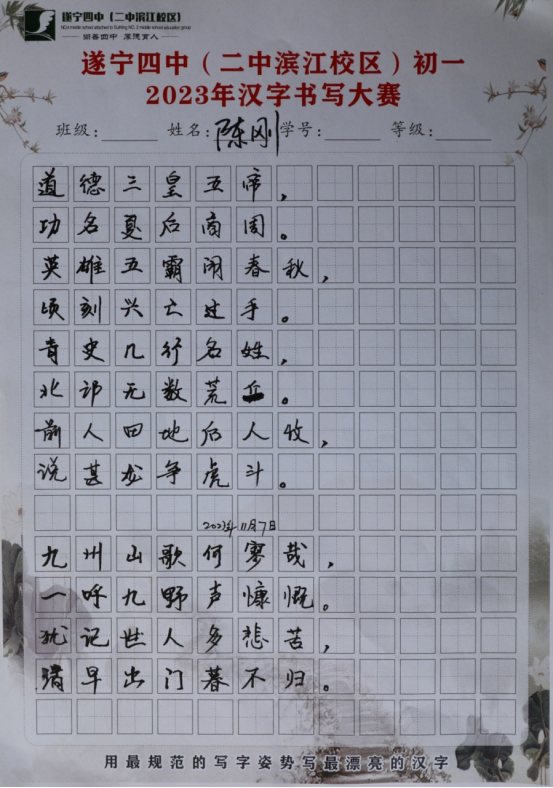 遂宁四中（二中滨江校区）
润善四中 厚德育人
遂宁四中（二中滨江校区）初一
2023年汉字书写大赛
班级： 姓名：陈刚 学号： 等级：
道德三皇五帝，
功名夏后商周。
英雄五霸闹春秋，
顷刻兴亡过手。
青史几行名姓，
北邙无数荒丘。
前人田地后人收，
说甚龙争虎斗。
2023年11月7日
九州山歌何寥哉，
一呼九野声慷慨。
犹记世人多悲苦，
清早出门暮不归。
用最规范的写字姿势写最漂亮的汉字